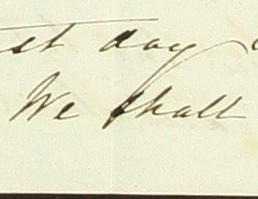 st day
We shall